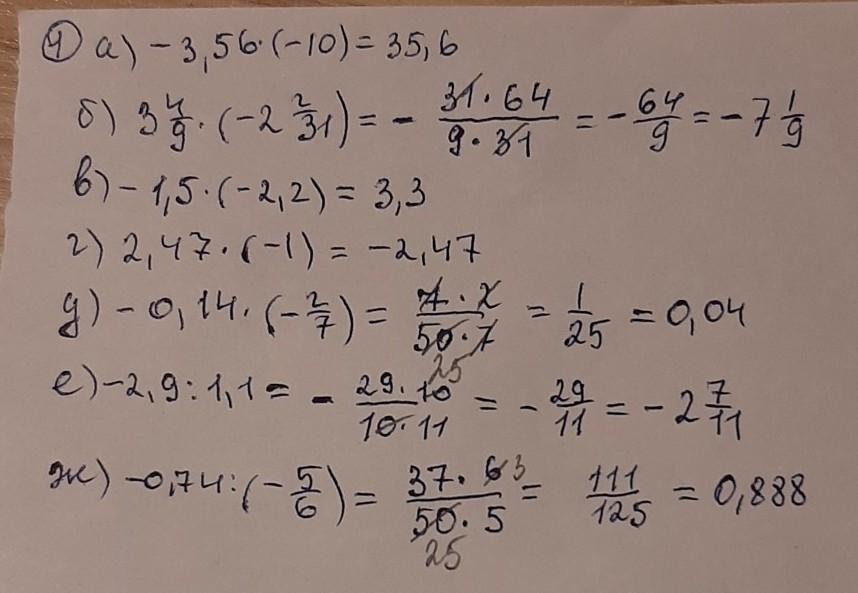 ④ а) - 3,56·(-10) = 35,6
б) 3 4/9 · (-2 2/31) = - 31·64/9·31 = - 64/9 = -7 1/9
в) - 1,5·(-2,2) = 3,3
г) 2,47·(-1) = -2,47
д) - 0,14·(- 2/7) = 7·2/50·7 = 1/25 = 0,04
25
е) -2,9 : 1,1 = - 29·10/10·11 = - 29/11 = - 2 7/11
ж) -0,74 : (- 5/6) = 37·6 3/50·5 = 111/125 = 0,888
25